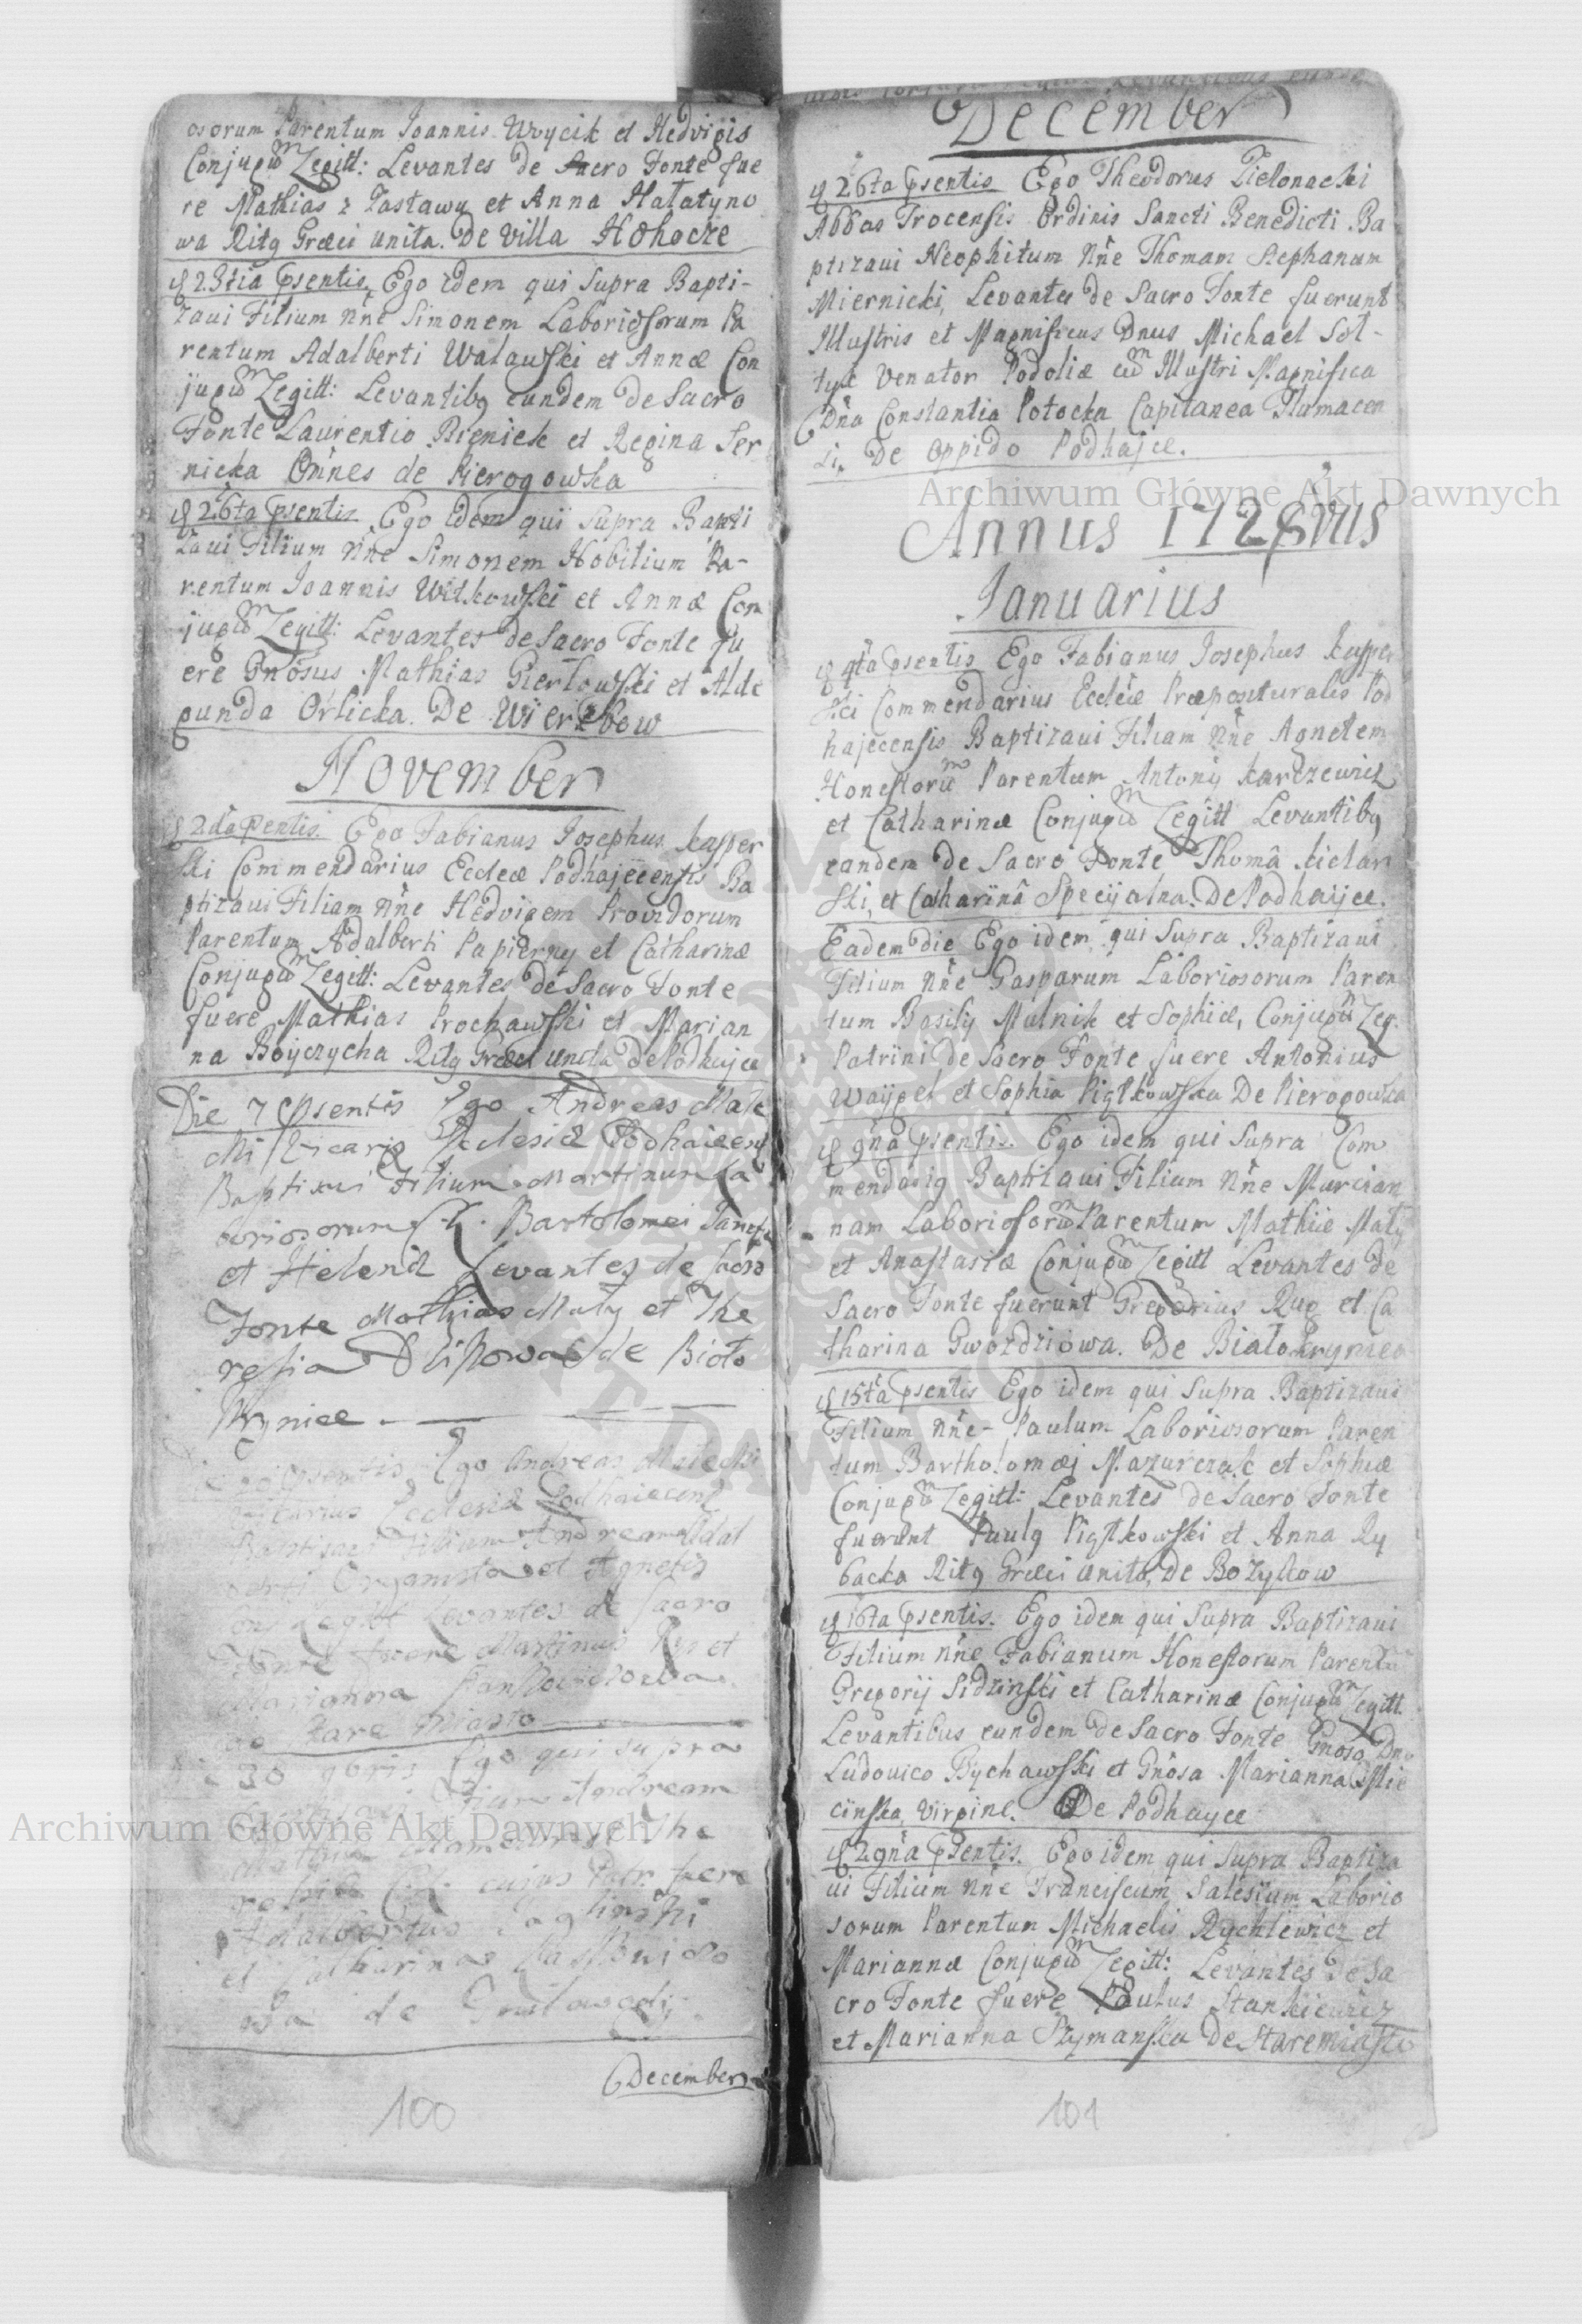 osorum Parentum Joannis Wycik et Hedvigis
Conjugũ Legitt: Levantes de Sacro Fonte fue
re Mathias z Zastawu et Anna Halatyno
wa Ritg Græci unita. De Villa Hohocze
23tia psentis Ego idem qui supra Bapti-
zavi Filium nñe Simonem Laboriosorum Pa
rentum Adalberti Walawski et Annæ Con
jugũ Legitt: Levantibg eundem de Sacro
Fonte Laurentio Bieniek et Regina Ser
nicka Omñes de Pierogowka
26ta psentis Ego idem qui supra Bapti
zavi Filium nñe Simonem Nobilium Pa-
rentum Joannis Witkowski et Annæ Con
jugũ Legitt: Levantes de Sacro Fonte fu
ere Gnõsus Mathias Gierlowski et Alde
gunda Orlicka. De Wierzbow
November
2da psentis Ego Fabianus Josephus Kasper
ski Commendarius Eccleæ Podhajecensis Ba
ptizavi Filiam nñe Hedvigem Providorum
Parentum Adalberti Papierny et Catharinæ
Conjugũ Legitt: Levantes de Sacro Fonte
fuere Mathias Prochawski et Marian
na Boyczycha Ritg Græci unita De Podhajce
Die 7 psentis Ego Andreas Male
cki Vicarig Ecclesiæ Podhaiecens
Baptisavi Filium Martinum La
boriosorum Bartolomei
et Helenæ Levantes de sacro
Fonte Mathias Maty et The
resia de Bialo
Krynice
psentis Ego Andreas Malecki
Vicarius Ecclesiæ Podhaiecens
Baptisavi Filium Andream Adal
berti Organista et Agnetis
Con Legitt Levantes de sacro
Fonte fuere Martinus Rys et
Marianna
Stare Miasto
30 9bris Ego qui supra
Baptisavi Filium Andream
The
resiæ cuius Patr: fuere
Adalbertus
et Catharina
wa de
December
100
December
26ta psentis Ego Theodorus Zielonacki
Abbas Trocensis Ordinis Sancti Benedicti Ba
ptizavi Neophitum nñe Thomam Stephanum
Miernicki, Levantes de Sacro Fonte fuerunt
Illustris et Magnificus Dnus Michael Sol-
tyk Venator Podoliæ cũ Illustri Magnifica
Dña Constantia Potocka Capitanea Tlumacen
si. De Oppido Podhajce.
Archiwum Główne Akt Dawnych
Annus 1728vus
Januarius
4ta psentis Ego Fabianus Josephus Kasper
ski Commendarius Eccleæ Præpositurales Pod
hajecensis Baptizavi Filiam nñe Agnetem
Honestorũ Parentum Antonij Karczewicz
et Catharinæ Conjugũ Legitt Levantibg
eandem de Sacro Fonte Thomâ Kiclar
ski, et Catharinâ Specyalna. De Podhayce.
Eadem die Ego idem qui supra Baptizavi
Filium nñe Gasparum Laboriosorum Paren
tum Basilij Mulnik et Sophiæ, Conjugũ Leg:
Patrini de Sacro Fonte fuere Antonius
Waygel et Sophia Piątkowska De Pierogowka
9na psentis. Ego idem qui supra Com
mendarig Baptizavi Filiam nñe Marian
nam Laboriosorũ Parentum Mathiæ Maty
et Anastasiæ Conjugũ Legitt Levantes de
Sacro Fonte fuerunt Gregorius Rug et Ca
tharina Gwozdziowa. De Bialokrynica
15ta psentis Ego idem qui supra Baptizavi
Filium nñe Paulum Laboriosorum Paren
tum Bartholomæj Mazurczak et Sophiæ
Conjugũ Legitt: Levantes de Sacro Fonte
fuerunt Paulg Piątkowski et Anna Ry
backa Ritg Græci unita, De Bozykow
16ta psentis. Ego idem qui supra Baptizavi
Filium nñe Fabianum Honestorum Parentũ
Gregorij Sidzinski et Catharinæ Conjugũ Legitt.
Levantibus eundem de Sacro Fonte Gnõso Dno
Ludovico Bychawski et Gnõsa Marianna Mie
cinska, Virgine. De Podhayce
29na psentis. Ego idem qui supra Baptiza
vi Filium nñe Franciscum Salesium Laborio
sorum Parentum Michaelis Rychlewicz et
Mariannæ Conjugũ Legitt: Levantes de Sa
cro Fonte fuere Paulus Stankiewicz
et Marianna Szymanska De Staremiasto
101
Archiwum Główne Akt Dawnych